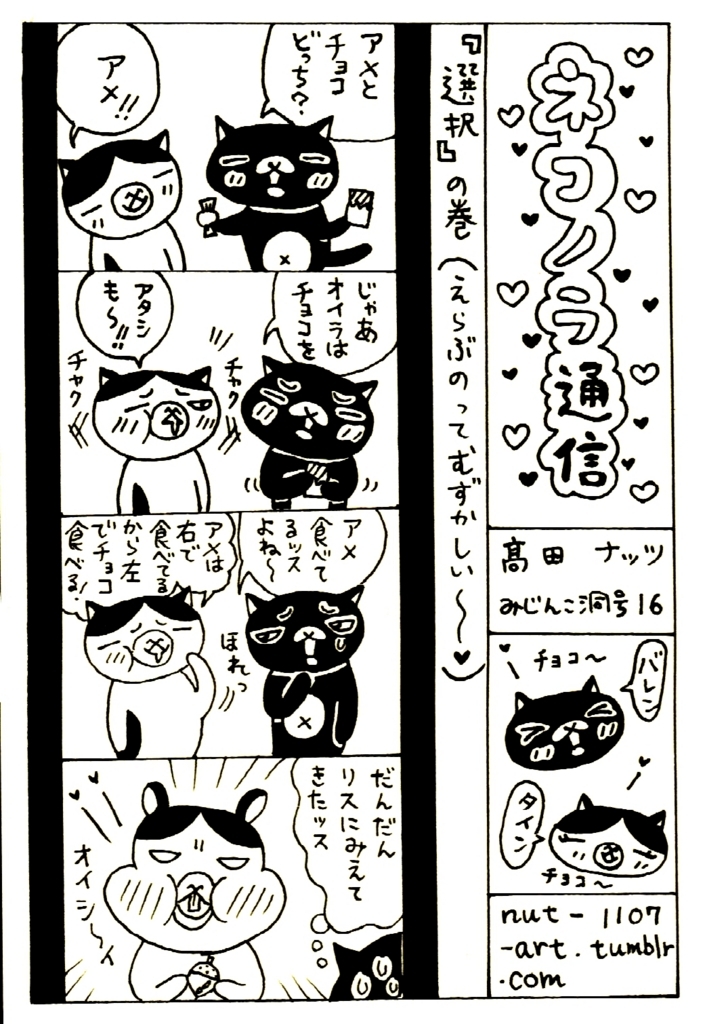 ネコノラ通信
髙田 ナッツ
みじんこ洞号16
バレン
チョコ〜
タイン
チョコ〜
nut-1107
-art.tumblr
.com
『選択』の巻(えらぶのってむずかしい〜♥)
アメと
チョコ
どっち?
アメ!!
じゃあ
オイラは
チョコを
アタシ
も〜!!
チャク
チャク
アメ
食べて
るッス
よね〜
アメは
右で
食べてる
から左
でチョコ
食べる!
ほれっ
だんだん
リスにみえて
きたッス
オイシ〜イ